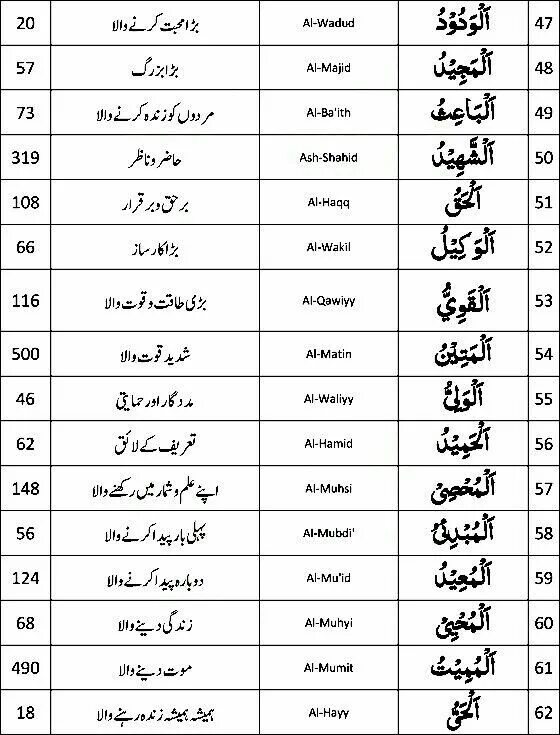 47 اَلْوَدُوْدُ Al-Wadud بڑا محبت کرنے والا 20
48 اَلْمَجِيْدُ Al-Majid بڑا بزرگ 57
49 اَلْبَاعِثُ Al-Ba'ith مردوں کو زندہ کرنے والا 73
50 اَلشَّهِيْدُ Ash-Shahid حاضر و ناظر 319
51 اَلْحَقُّ Al-Haqq برحق و برقرار 108
52 اَلْوَكِيْلُ Al-Wakil بڑا کارساز 66
53 اَلْقَوِيُّ Al-Qawiyy بڑی طاقت و قوت والا 116
54 اَلْمَتِيْنُ Al-Matin شدید قوت والا 500
55 اَلْوَلِيُّ Al-Waliyy مددگار اور حمایتی 46
56 اَلْحَمِيْدُ Al-Hamid تعریف کے لائق 62
57 اَلْمُحْصِيْ Al-Muhsi اپنے علم و شمار میں رکھنے والا 148
58 اَلْمُبْدِئُ Al-Mubdi' پہلی بار پیدا کرنے والا 56
59 اَلْمُعِيْدُ Al-Mu'id دوبارہ پیدا کرنے والا 124
60 اَلْمُحْيِيْ Al-Muhyi زندگی دینے والا 68
61 اَلْمُمِيْتُ Al-Mumit موت دینے والا 490
62 اَلْحَيُّ Al-Hayy ہمیشہ ہمیشہ زندہ رہنے والا 18